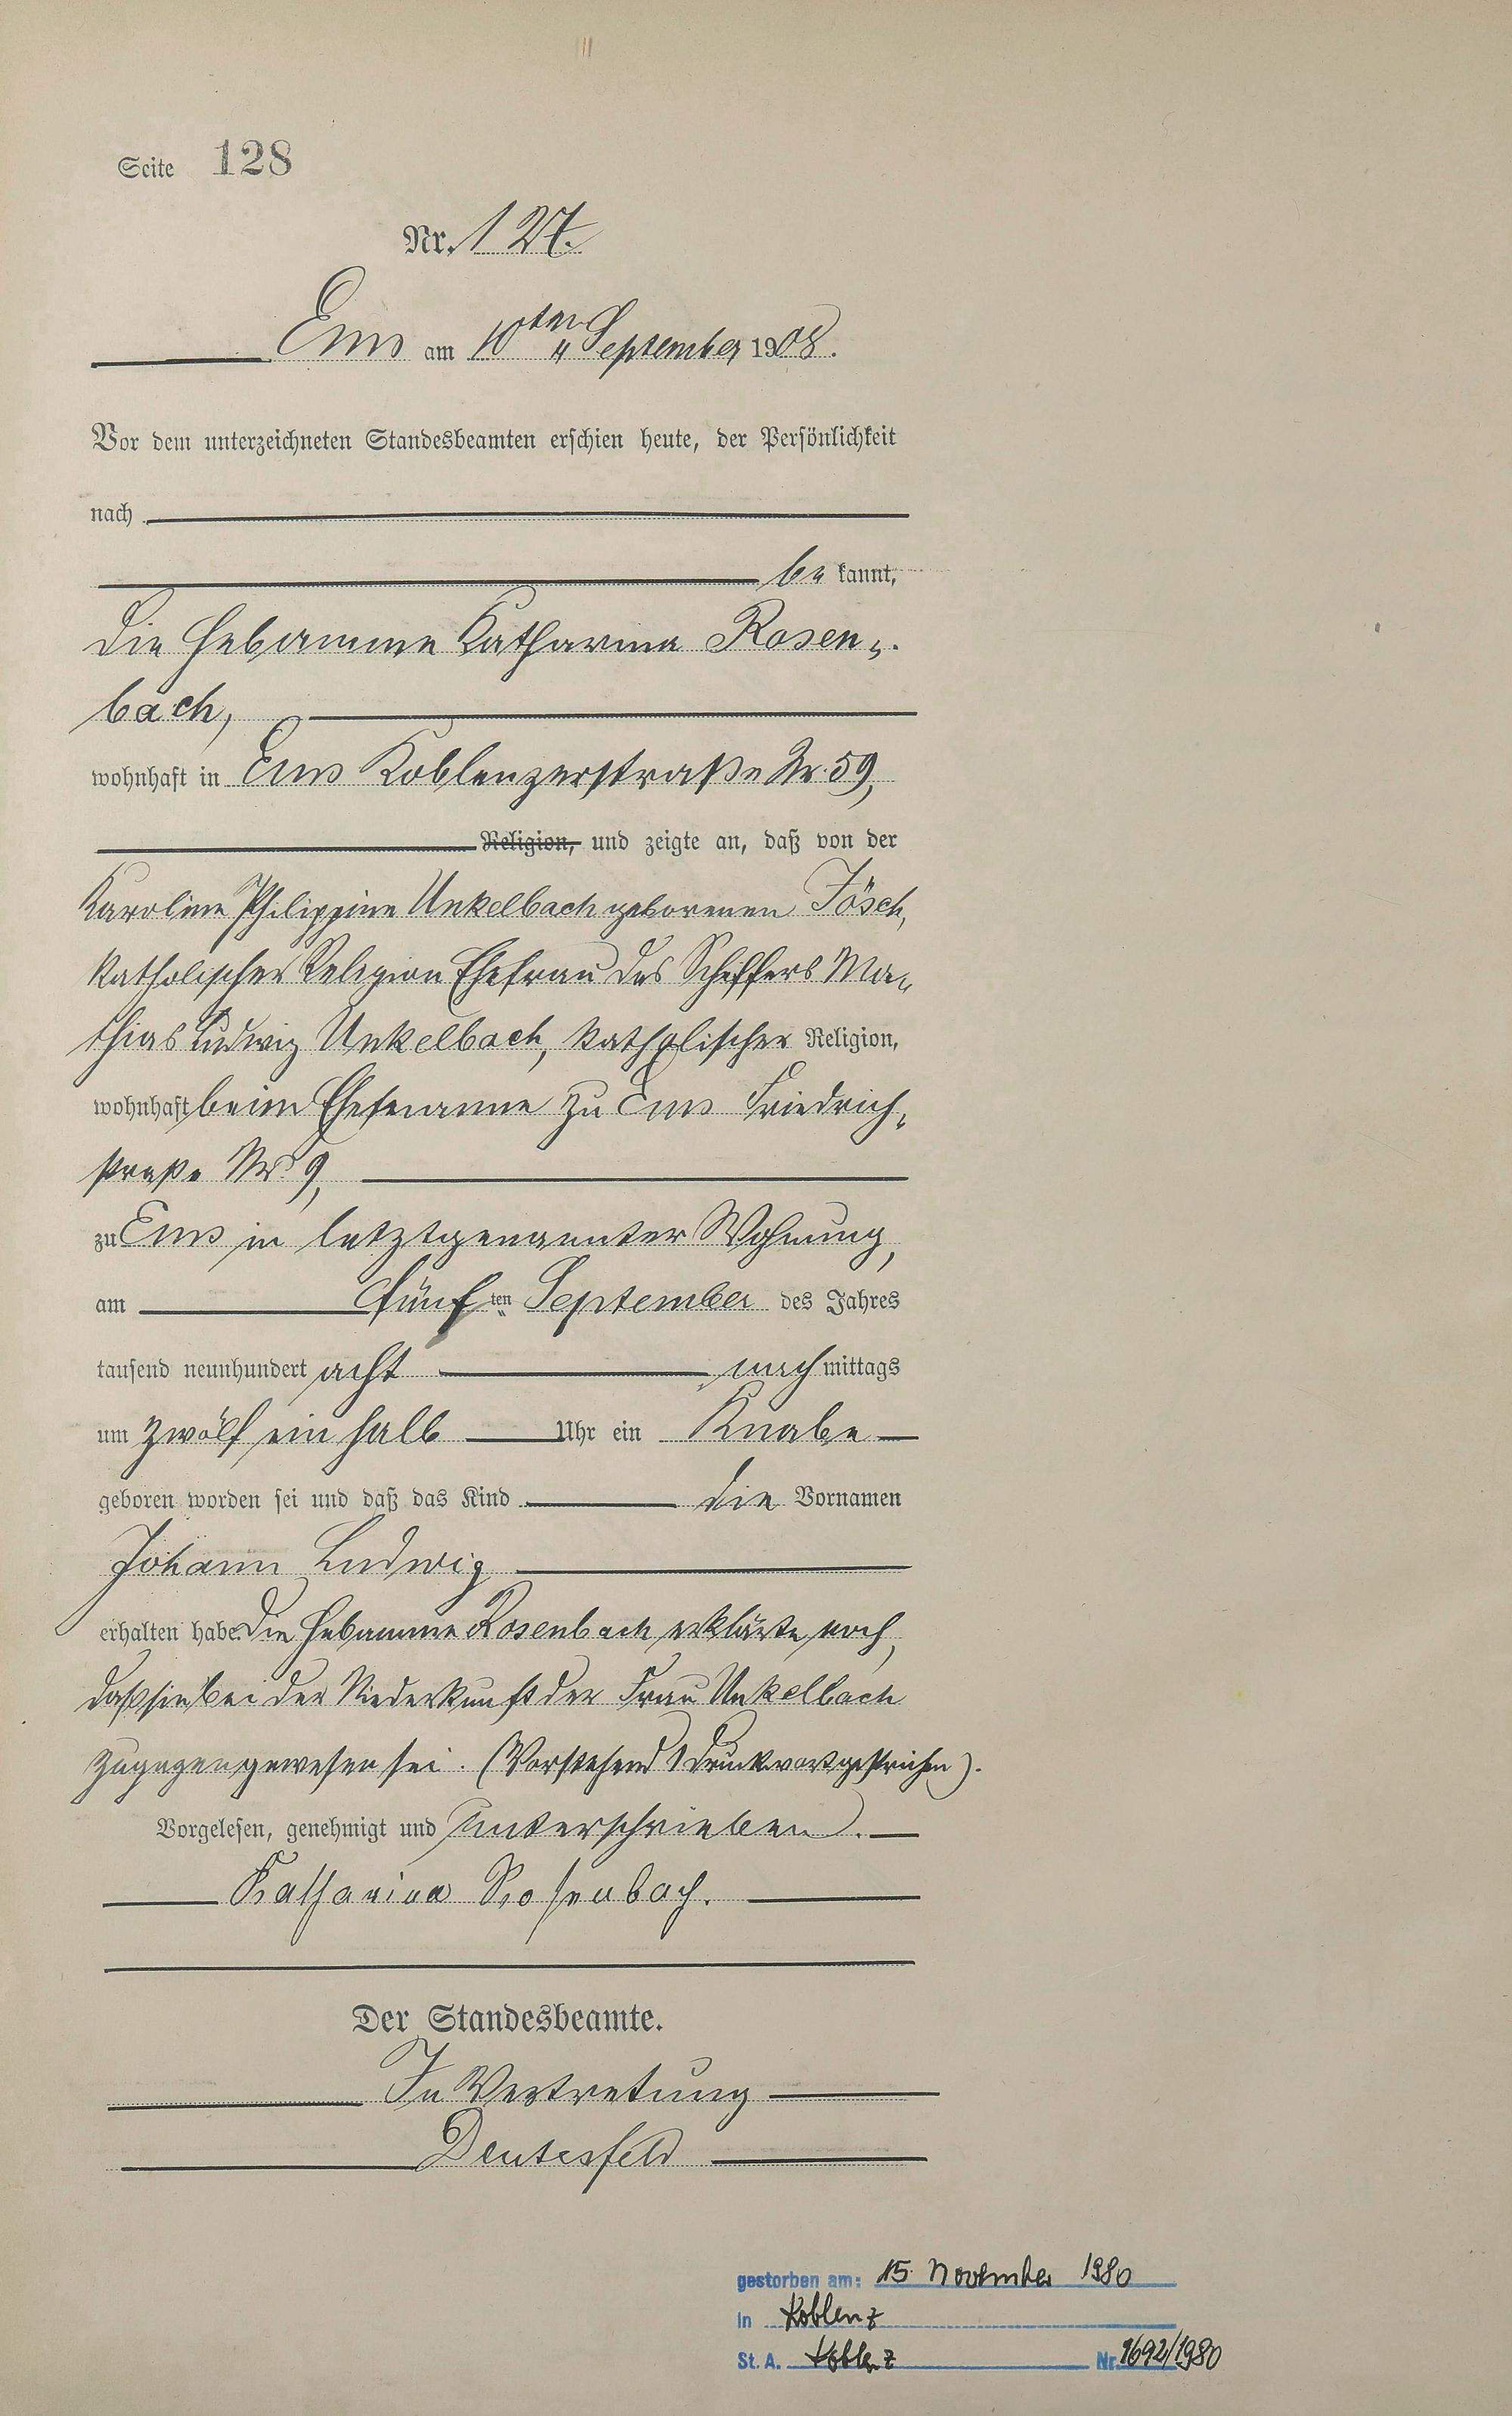 Seite 128
Nr. 127.
Ems am 10ten September 1908.
Vor dem unterzeichneten Standesbeamten erschien heute, der Persönlichkeit
nach
be kannt,
die Hebamme Katharina Rosen-
bach,
wohnhaft in Ems Koblenzerstraße Nr. 59,
Religion, und zeigte an, daß von der
Karoline Philippine Unkelbach geborenen Jösch,
katholischer Religion Ehefrau des Schiffers Ma-
thias Ludwig Unkelbach, katholischer Religion,
wohnhaft beim Ehemanne zu Ems Friedrich-
straße Nr. 9,
zu Ems in letztgenannter Wohnung,
am fünften September des Jahres
tausend neunhundert acht nachmittags
um zwölf ein halb Uhr ein Knabe
geboren worden sei und daß das Kind die Vornamen
Johann Ludwig
erhalten habe. Die Hebamme Rosenbach erklärte noch,
daß sie bei der Niederkunft der Frau Unkelbach
zugegen gewesen sei. (Vorstehend 1 Druckwort gestrichen).
Vorgelesen, genehmigt und unterschrieben.
Katharina Rosenbach.
Der Standesbeamte.
In Vertretung
Deutesfeld
gestorben am: 15. November 1980
in Koblenz
St. A. Koblenz Nr. 1692/1980